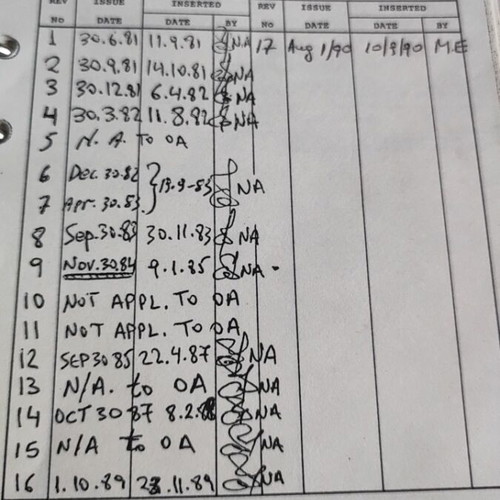 REV ISSUE INSERTED REV ISSUE INSERTED
NO DATE DATE BY NO DATE DATE BY
1 30.6.81 11.9.81 NA 17 Aug 1/90 10/8/90 M.E
2 30.9.81 14.10.81 NA
3 30.12.81 6.4.82 NA
4 30.3.82 11.8.82 NA
5 N.A. To OA
6 Dec.30.82
} 13.9-83 NA
7 Apr.30.83
8 Sep.30.83 30.11.83 NA
9 Nov.30.84 9.1.85 NA.
10 NOT APPL. TO OA
11 NOT APPL. TO OA
12 SEP 30 85 22.4.87 NA
13 N/A. to OA NA
14 OCT 30 87 NA
15 N/A to OA NA
16 1.10.89 NA